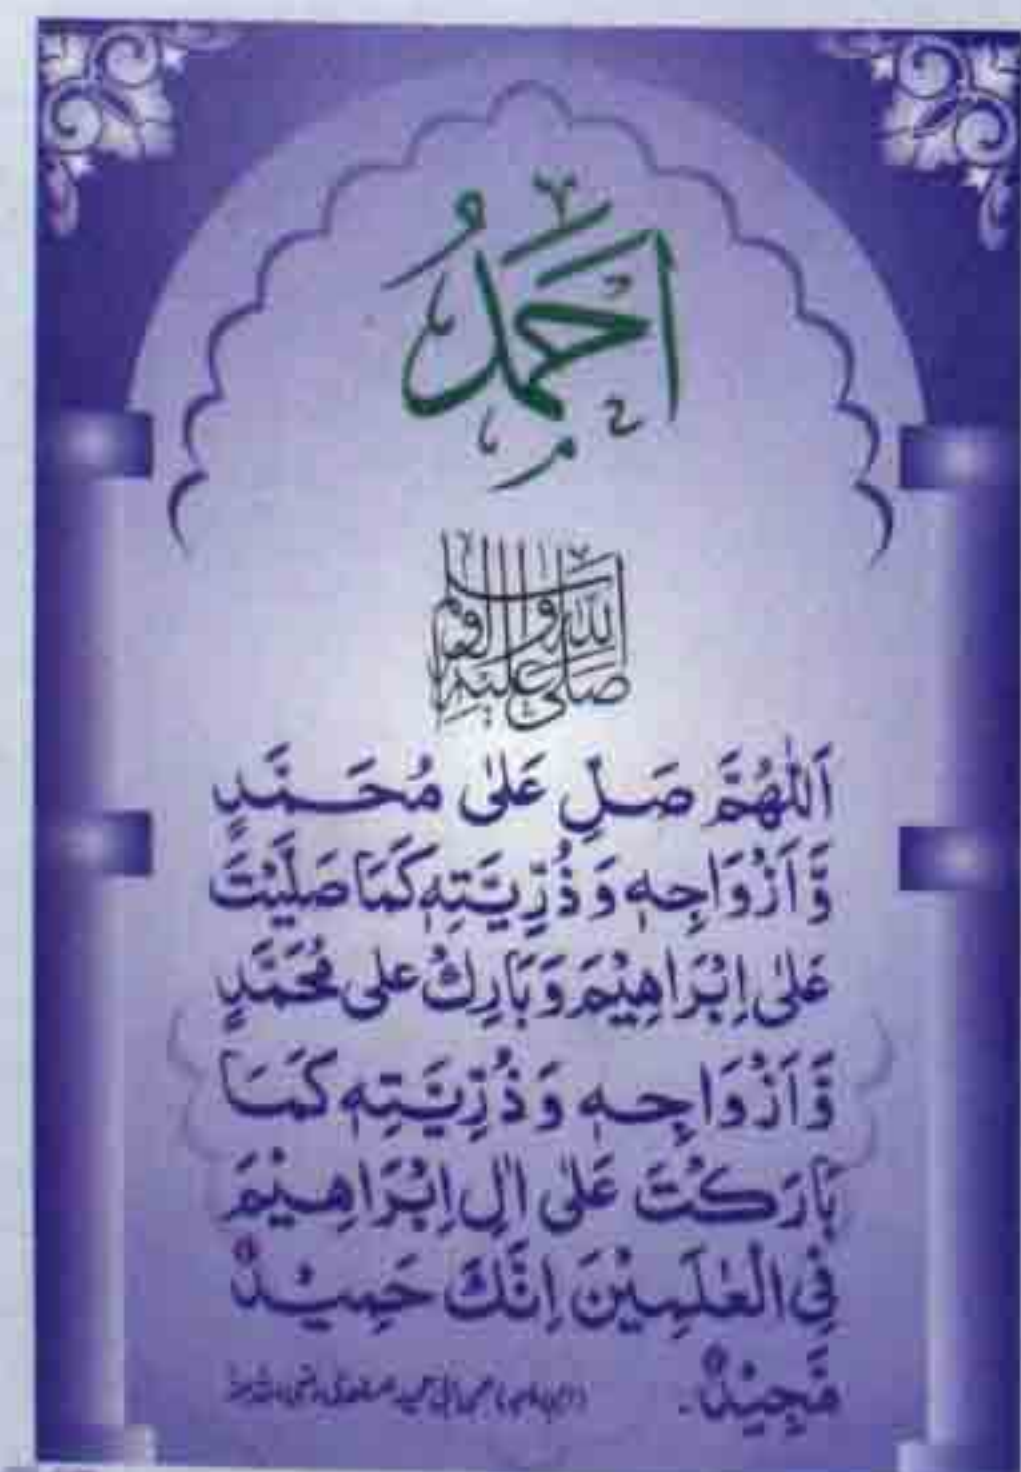 اَحْمَدُ
صَلَّی اللّٰہُ عَلَیْہِ وَاٰلِہٖ وَسَلَّمَ
اَللّٰهُمَّ صَلِّ عَلٰی مُحَمَّدٍ
وَّاَزْوَاجِهٖ وَذُرِّيَّتِهٖ كَمَا صَلَّيْتَ
عَلٰی اِبْرَاهِيْمَ وَبَارِكْ علی مُحَمَّدٍ
وَّاَزْوَاجِهٖ وَذُرِّيَّتِهٖ كَمَا
بَارَكْتَ عَلٰی اٰلِ اِبْرَاهِيْمَ
فِی الْعٰلَمِيْنَ اِنَّكَ حَمِيْدٌ
مَّجِيْدٌ۔